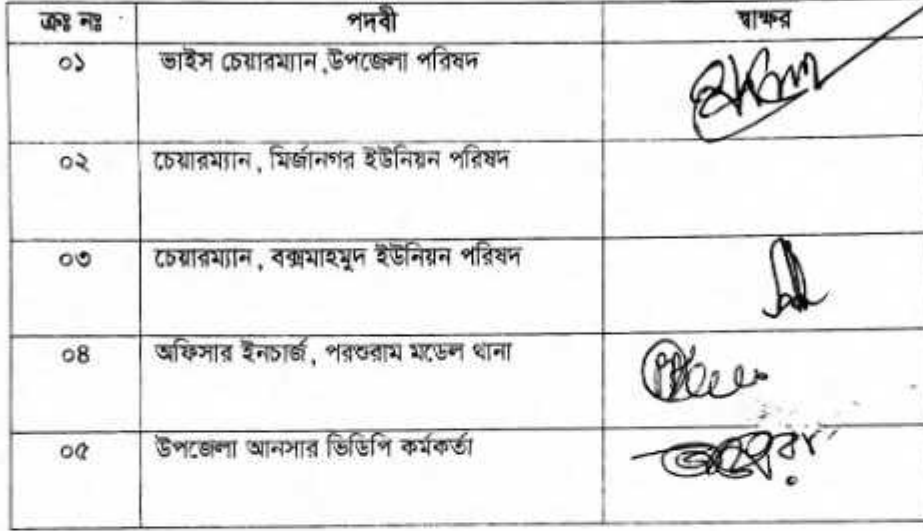 ক্রঃ নঃ পদবী স্বাক্ষর
০১ ভাইস চেয়ারম্যান ,উপজেলা পরিষদ
০২ চেয়ারম্যান , মির্জানগর ইউনিয়ন পরিষদ
০৩ চেয়ারম্যান , বক্সমাহমুদ ইউনিয়ন পরিষদ
০৪ অফিসার ইনচার্জ, পরশুরাম মডেল থানা
০৫ উপজেলা আনসার ভিডিপি কর্মকর্তা